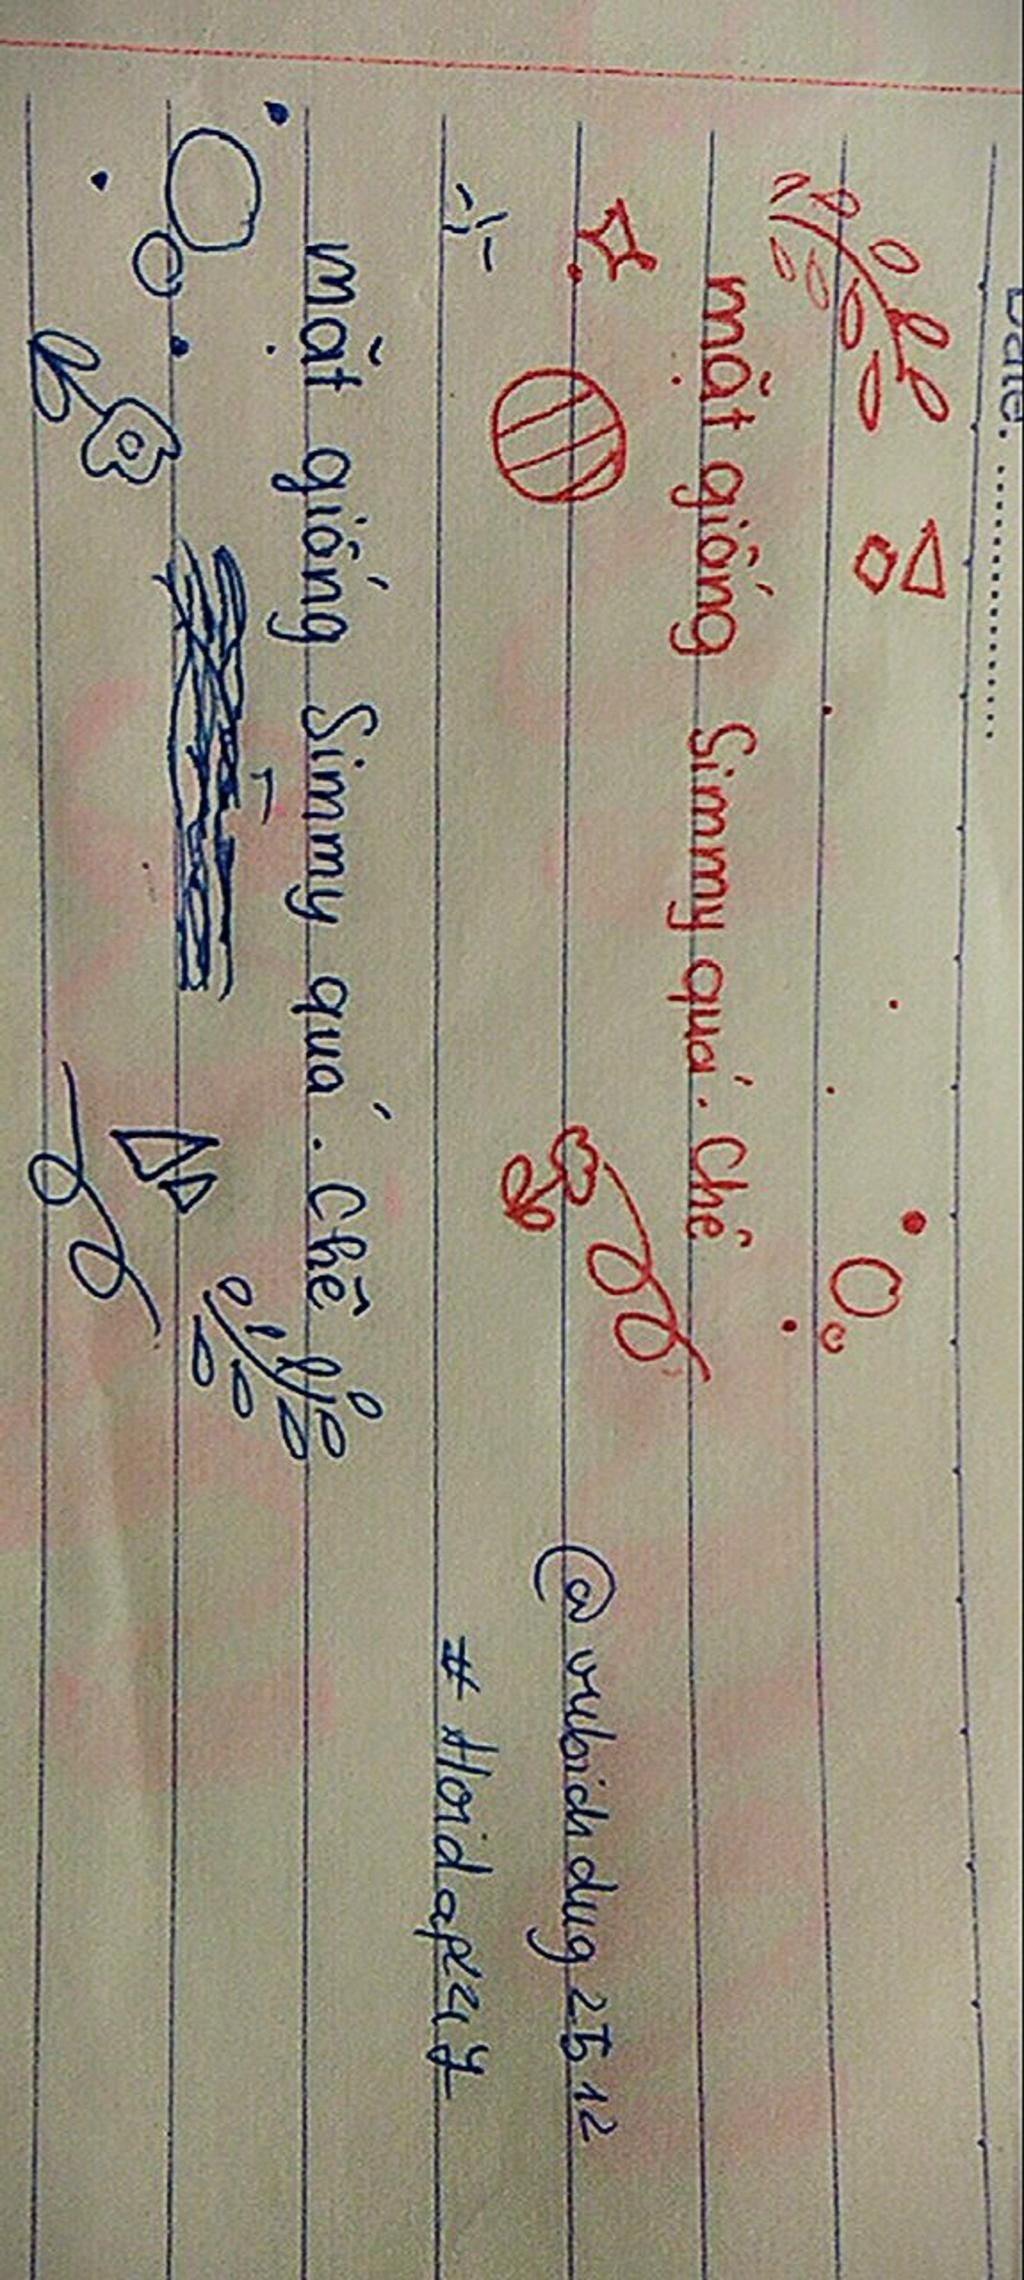 Date: ....................
mặt giống Simmy quá. Chê
@vubichdug2512
#Hoidap247
mặt giống Simmy quá. Chê